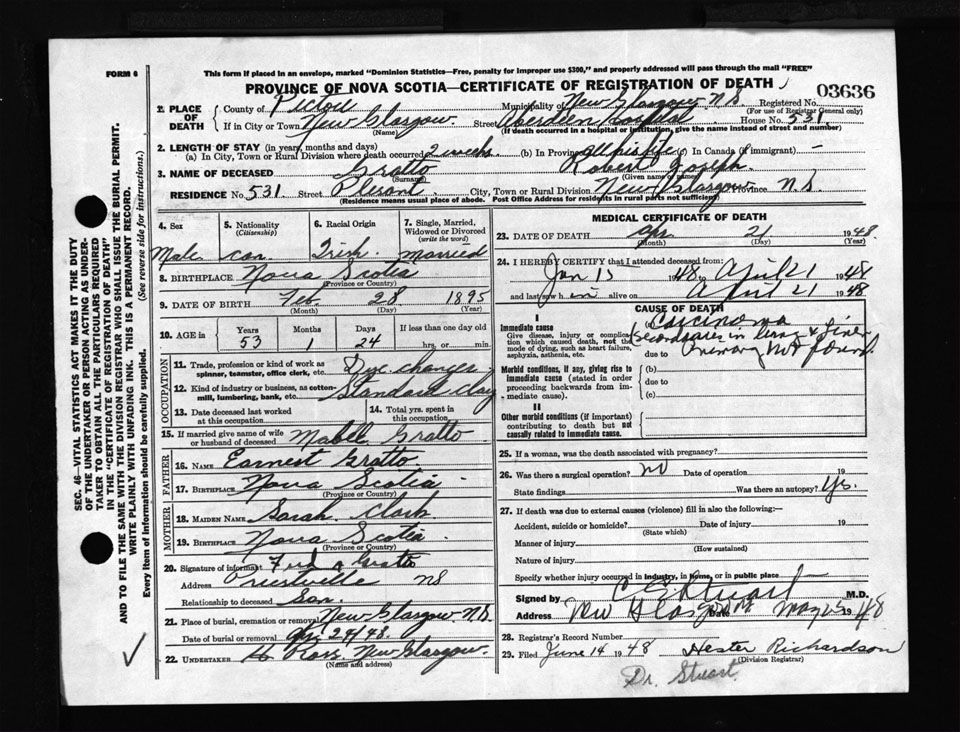 FORM 6
This form if placed in an envelope, marked "Dominion Statistics—Free, penalty for improper use $300," and properly addressed will pass through the mail "FREE"
PROVINCE OF NOVA SCOTIA—CERTIFICATE OF REGISTRATION OF DEATH
03636
1. PLACE OF DEATH
County of Pictou Municipality of New Glasgow N.S Registered No.
(For use of Registrar General only)
If in City or Town New Glasgow Street Aberdeen Hospital House No. 531.
(Name) (If death occurred in a hospital or institution, give the name instead of street and number)
2. LENGTH OF STAY (in years, months and days)
(a) In City, Town or Rural Division where death occurred 2 weeks. (b) In Province all his life (c) In Canada (if immigrant) —
3. NAME OF DECEASED Gratto Robert Joseph.
(Surname) (Given name or names)
RESIDENCE No. 531 Street City, Town or Rural Division New Glasgow Province N.S.
(Residence means usual place of abode. Post Office Address for residents in rural parts not sufficient)
4. Sex
5. Nationality (Citizenship)
6. Racial Origin
7. Single, Married, Widowed or Divorced (write the word)
Male can. Irish married
8. BIRTHPLACE Nova Scotia
(Province or Country)
9. DATE OF BIRTH Feb 28 1895
(Month) (Day) (Year)
10. AGE in
Years Months Days If less than one day old
53 1 24 hrs. or min.
OCCUPATION
11. Trade, profession or kind of work as spinner, teamster, office clerk, etc. changer
12. Kind of industry or business, as cotton-mill, lumbering, bank, etc. Standard Clay
13. Date deceased last worked at this occupation
14. Total yrs. spent in this occupation
15. If married give name of wife or husband of deceased Mabel Gratto
FATHER
16. NAME Earnest Gratto
17. BIRTHPLACE Nova Scotia
(Province or Country)
MOTHER
18. MAIDEN NAME Sarah Clark
19. BIRTHPLACE Nova Scotia
(Province or Country)
20. Signature of informant Gratto
Address Priestville NS
Relationship to deceased Son.
21. Place of burial, cremation or removal New Glasgow N.S.
Date of burial or removal Apr 24/48.
22. UNDERTAKER H Ross. New Glasgow.
(Name and address)
MEDICAL CERTIFICATE OF DEATH
23. DATE OF DEATH Apr 21 1948.
(Month) (Day) (Year)
24. I HEREBY CERTIFY that I attended deceased from:
Jan 15 1948 to April 21 1948
and last saw him alive on April 21 1948
CAUSE OF DEATH
I
Immediate cause
Give disease, injury or complication which caused death, not the mode of dying, such as heart failure, asphyxia, asthenia, etc.
(a) Carcinoma
Secondaries in lung & liver
due to Primary not found.
Morbid conditions, if any, giving rise to immediate cause (stated in order proceeding backwards from immediate cause)
(b)
due to
(c)
II
Other morbid conditions (if important) contributing to death but not causally related to immediate cause.
25. If a woman, was the death associated with pregnancy?
26. Was there a surgical operation? no Date of operation 19
State findings Was there an autopsy? Yes.
27. If death was due to external causes (violence) fill in also the following:—
Accident, suicide or homicide? Date of injury 19
(State which)
Manner of injury
(How sustained)
Nature of injury
Specify whether injury occurred in industry, in home, or in public place
Signed by Stuart M.D.
Address New Glasgow Date May 25 1948
28. Registrar's Record Number
29. Filed June 14 1948 Hester Richardson
(Division Registrar)
Dr. Stuart.
SEC. 46—VITAL STATISTICS ACT MAKES IT THE DUTY
OF THE UNDERTAKER OR PERSON ACTING AS UNDER-
TAKER TO OBTAIN ALL THE PARTICULARS REQUIRED
IN THE "CERTIFICATE OF REGISTRATION OF DEATH"
AND TO FILE THE SAME WITH THE DIVISION REGISTRAR WHO SHALL ISSUE THE BURIAL PERMIT.
WRITE PLAINLY WITH UNFADING INK. THIS IS A PERMANENT RECORD.
Every item of information should be carefully supplied. (See reverse side for instructions.)